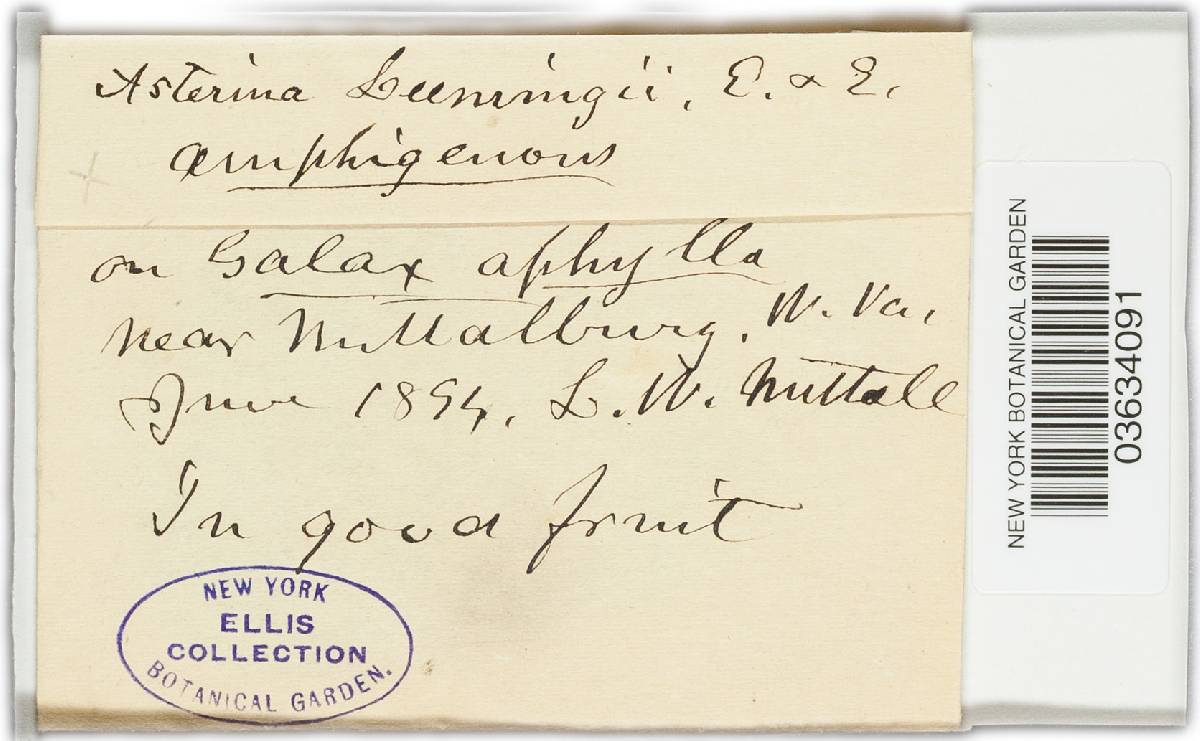 Asterina Leemingii, E. & E.
amphigenous
on Galax aphylla
near Nuttalburg, W. Va,
June 1894, L. W. Nuttall
In good fruit
NEW YORK
ELLIS
COLLECTION
BOTANICAL GARDEN.
NEW YORK BOTANICAL GARDEN
03634091